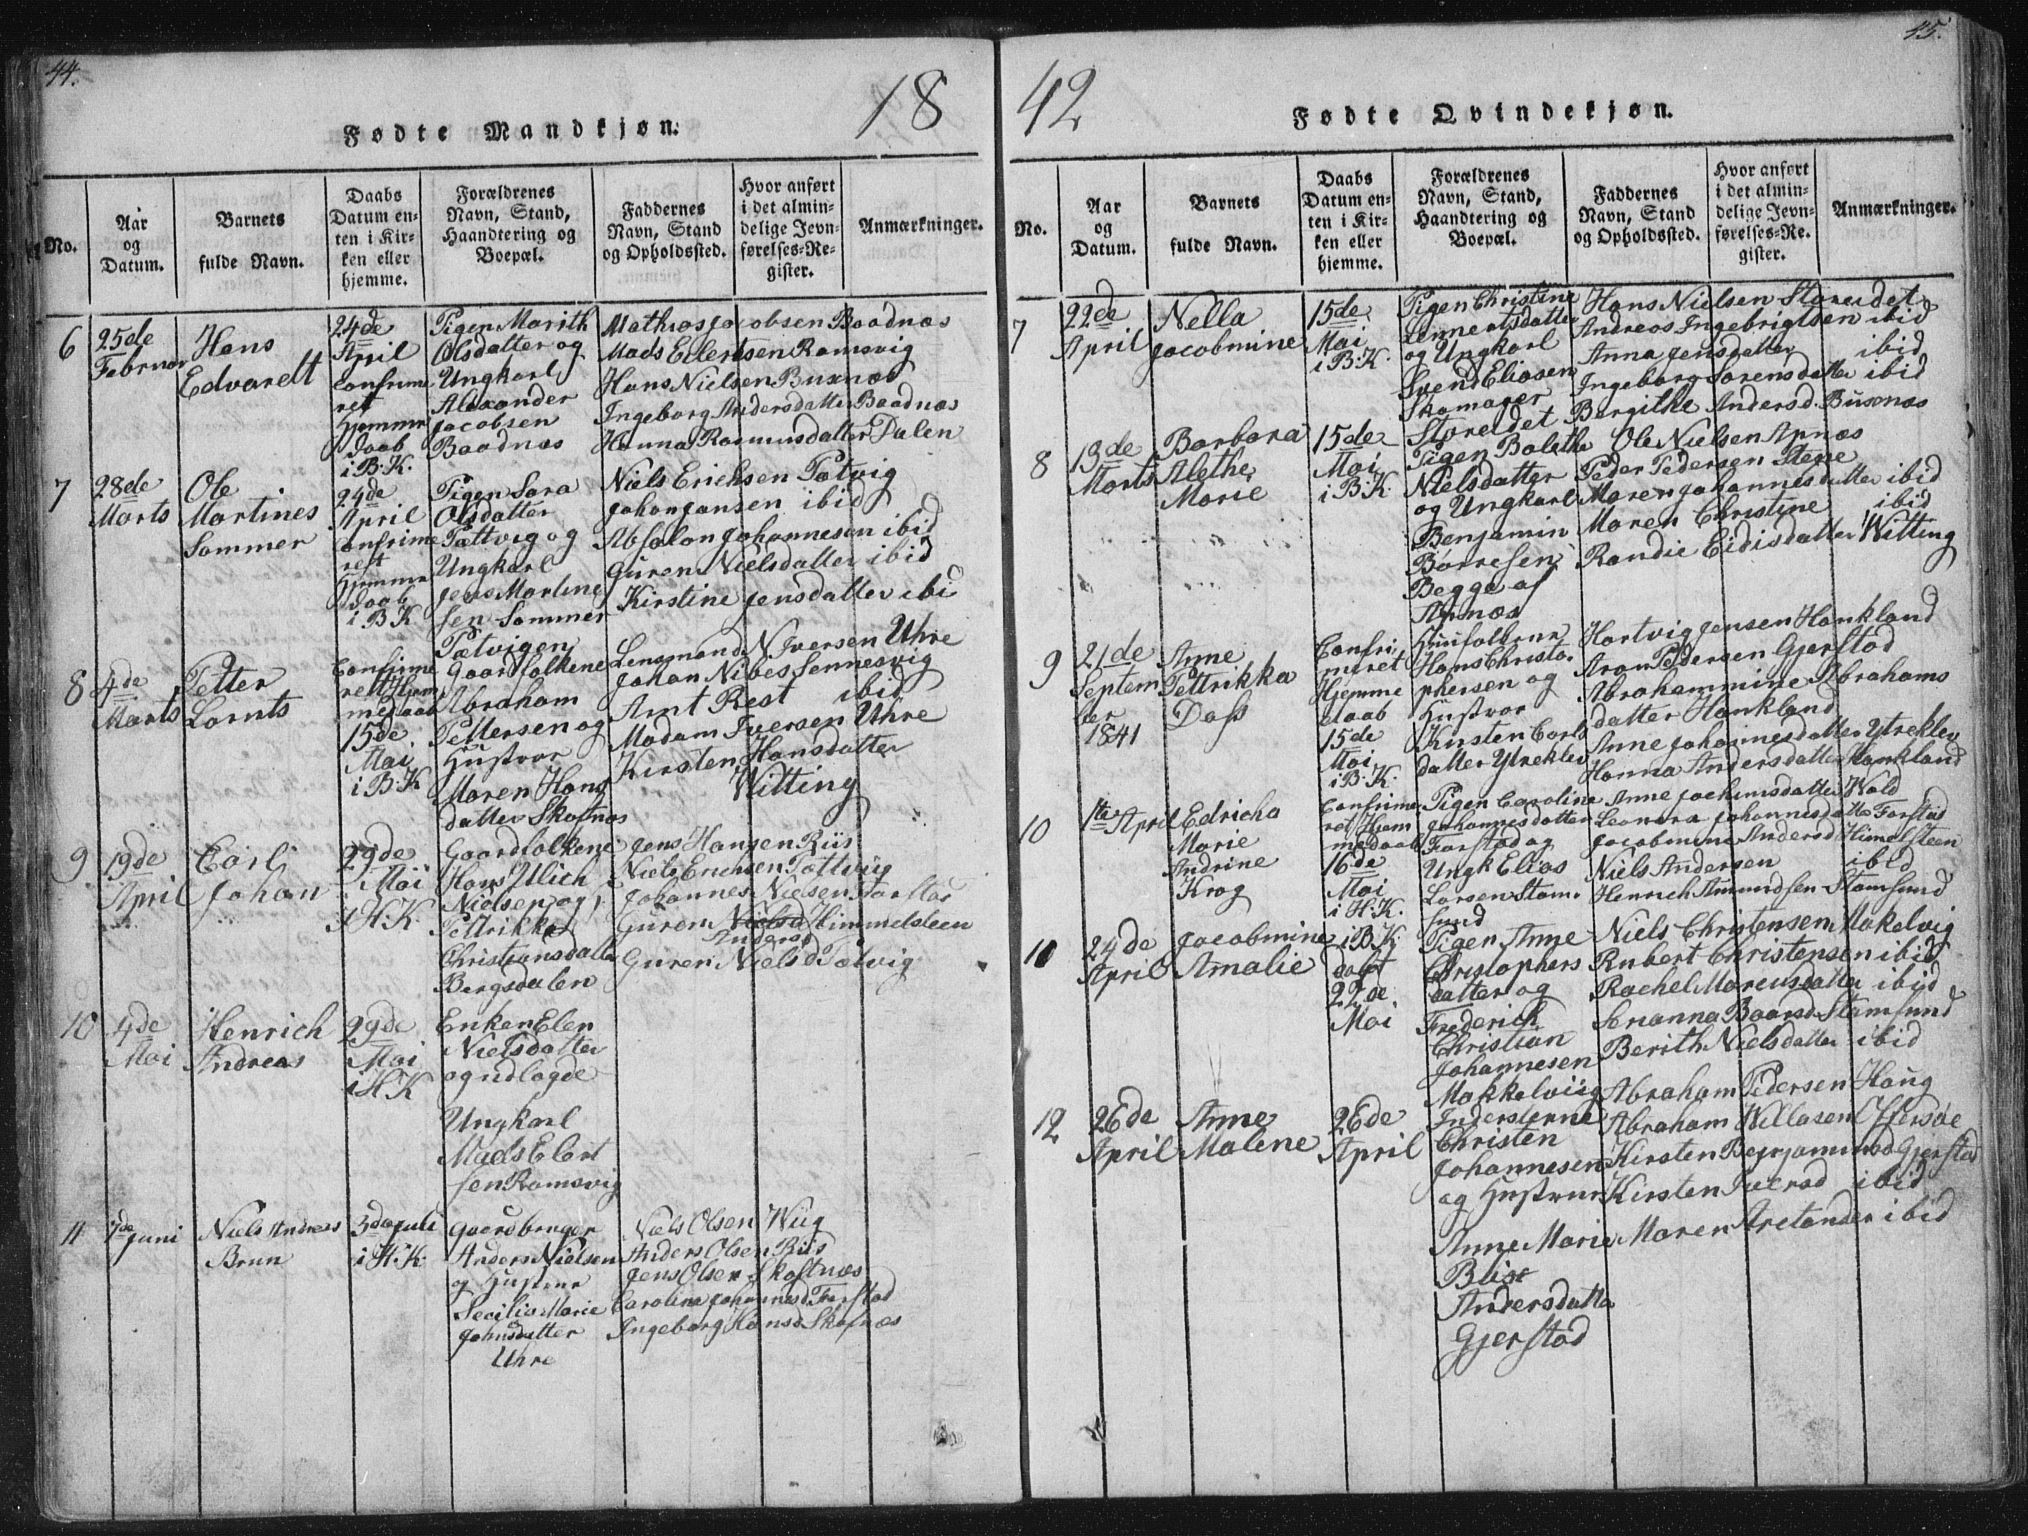 44.
18
Fødte Mandkjøn.
No.
Aar
og
Datum.
Barnets
fulde Navn.
Daabs
Datum en-
ten i Kir-
ken eller
hjemme.
Forældrenes
Navn, Stand,
Haandtering og
Boepæl.
Faddernes
Navn, Stand
og Opholdssted.
Hvor anført
i det almin-
delige Jevn-
førelses-Re-
gister.
Anmærkninger.
6
25de
Februar
Hans
Edvardt
24de
April
Confirme
ret
Hjemme
Daab
i B.K.
Pigen Marith
Olsdatter og
Ungkarl
Alexander
Jacobsen
Baadnæs
Mathias Jacobsen Baadnæs
Mads Eilertsen Ramsvig
Hans Nielsen Buxnæs
Ingeborg Andersdatter Baadnæs
Hanna Rasmusdatter Dalen
7
28de
Marts
Ole
Martines
Sommer
24de
April
Confirme
ret
Hjemme
Daab
i B.K
Pigen Sara
Olsdatter
Tættvig og
Ungkarl
Jens Martine
sen Sommer
Tætvigen
Niels Erichsen Tætvig
Johan Jansen ibid
Absalon Johannesen ibid
Guren Nielsdatter ibid
Kirstine Jensdatter ibi
8
4de
Marts
Petter
Lornts
Confirme
ret Hjem
medaab
15de
Mai
i B.K
Gaardfolkene
Abraham
Pettersen og
Hustror
Maren Hans
datter Skafnæs
Lensmand N Iversen Uhre
Johan Nibes Sennesvig
Arnt Rest ibid
Madam Iversen Uhre
Kirsten Hansdatter
Witting
9
19de
April
Carl
Johan
29de
Mai
i H.K.
Gaardfolkene
Hans Ulich
Nielsen og
Pettrikke
Christiansdatte
Bergsdalen
Jens Hansen Riis
Niels Erichsen Tættviig
Johannes Nielsen Farstad
Guren Nielsd Himmelsteen
Andersd
Guren Nielsd Tætvig
10
4de
Mai
Henrich
Andreas
29de
Mai
i H.K
Enken Elen
Nielsdatter
og udlagde
Ungkarl
Mads Elert
sen Ramsvig
11
7de Juni
Niels Andreas
Brun
3de Juli
i H.K.
Gaardbruger
Anders Nielsen
og Hustrue
Secilia Marie
Johnsdatter
Uhre
Niels Olsen Wiig
Anders Olsen Riis
Jens Olsen Skaftnæs
Caroline Johannesd Farstad
Ingeborg Hansd Skafnæs
45.
42
Fødte Qvindekjøn.
No.
Aar
og
Datum.
Barnets
fulde Navn.
Daabs
Datum en-
ten i Kir-
ken eller
hjemme.
Forældrenes
Navn, Stand,
Haandtering og
Boepæl.
Faddernes
Navn, Stand
og Opholdssted.
Hvor anført
i det almin-
delige Jevn-
førelses-Re-
gister.
Anmærkninger.
7
22de
April
Nella
Jacobmine
15de
Mai
i B.K.
Pigen Christine
Lennertsdatter
og Ungkarl
Svend Eliasen
Skomager
Storeidet
Hans Nielsen Storeidet
Andreas Ingebrigtsen ibid
Anna Jensdatter ibid
Ingeborg Sørensdatter ibid
Bergithe Andersd. Buxnæs
8
13de
Marts
Barbara
Alethe
Marie
15de
Mai
i B.K
Pigen Bolethe
Nielsdatter
og Ungkarl
Benjamin
Børresen
Begge af
Apnæs
Ole Nielsen Apnæs
Peder Pedersen Stene
Maren Johannesdatter ibid
Maren Christine ibid
Randie Eidisdatter Witting
9
21de
Septem
ber
1841
Anne
Pettrikka
Dass
Confir
meret
Hjemme
daab
15de
Mai
i B.K.
Huusfolkene
Hans Christo
phersen og
Hustror
Kirsten Carls
datter Ytreklev
Hartvig Jensen Hankland
Aron Pedersen Gjerstad
Abrahammine Abrahams
datter Hankland
Anne Johannesdatter Ytreklev
Hanna Andersdatter Hankland
10
1te April
Edricha
Marie
Andrine
Krog
Confirme
ret Hjem
medaab
16de
Mai
i H.K.
Pigen Caroline
Johannesdatter
Farstad og
Ungk Elias
Larsen Stam
sund
Anne Jochimsdatter Wold
Leonora Johannesdatte Farstad
Jacobmine Andersd Himelsteen
Niels Andersen ibid
Henrich Amundsen Stamsund
11
24de
April
Jacobmine
Amalie
i B.K.
døbt
22de
Mai
Pigen Anne
Christophers
datter og
Frederich
Christian
Johannesen
Makkelviig
Niels Christensen Makelvig
Rubert Christensen ibid
Rachel Marcusdatter ibid
Sananna Baarsd Stamsund
Berith Nielsdatter ibid
12
26de
April
Anne
Malene
26de
April
Inderstenne
Christen
Johannesen
og Hustrue
Anne Marie
Blix
Andersdatte
Gjerstad
Abraham Pedersen Haug
Abraham Willasen Offersøe
Kirsten Benjaminsd Gjerstad
Kirsten Iversd ibid
Maren Aretander ibid